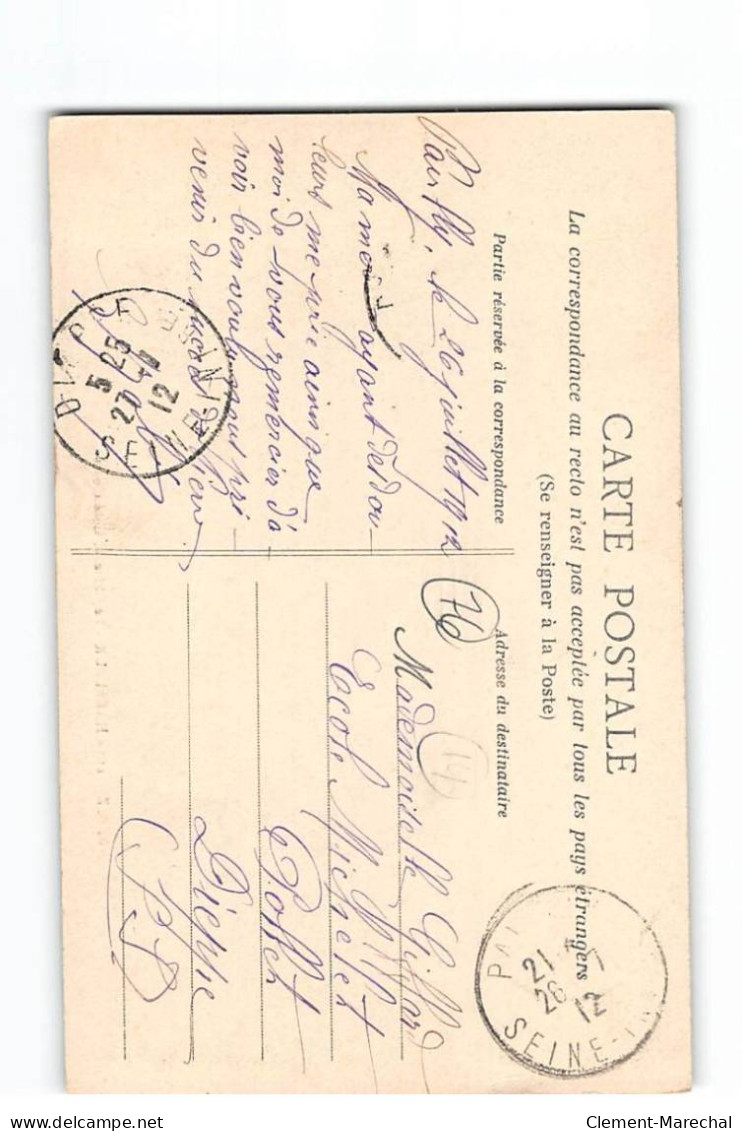 CARTE POSTALE
La correspondance au recto n'est pas acceptée par tous les pays étrangers
(Se renseigner à la Poste)
Partie réservée à la correspondance
Adresse du destinataire
Pavilly, le 26 juillet 1912
Ma mère ayant des dou-
leurs me prie ainsi que
moi de vous remercier d'a
voir bien voulu nous pré-
venir du succès de
76
Mademoiselle Gifford
Ecole Michelet
Pollet
Dieppe
(S I)
DIEPPE
5 25
27 -7
12
SEINE-INFRE
21
26
12
SEINE-
Clement-Marechal